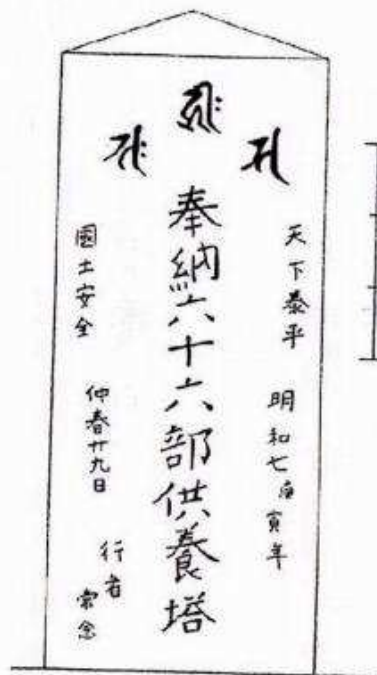 天下泰平 明和七庚寅年
奉納六十六部供養塔
國土安全 仲春廿九日
行者